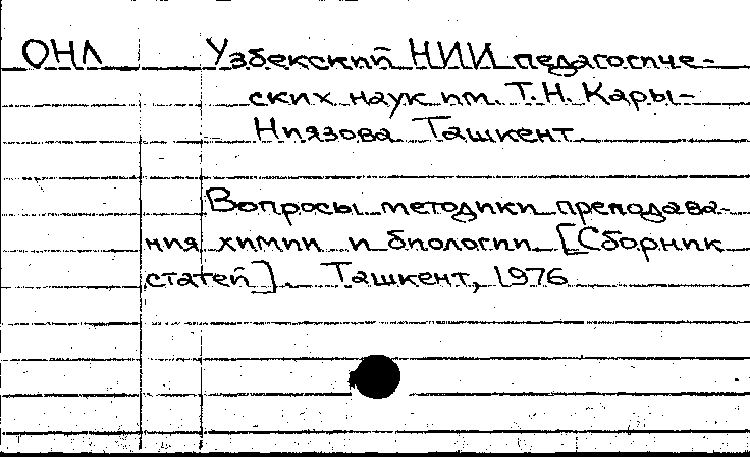 ОНЛ Узбекский НИИ педагогиче-
ских наук им. Т.Н. Кары-
Ниязова Ташкент.
Вопросы методики преподава-
ния химии и биологии [Сборник
статей]. Ташкент, 1976